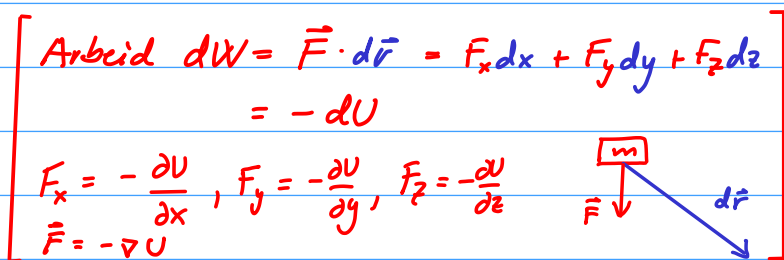 Arbeid dW = F⃗ · dr⃗ = Fₓdx + F_y dy + F_z dz
= - dU
Fₓ = - ∂U/∂x , F_y = - ∂U/∂y , F_z = - ∂U/∂z
m
F⃗ = - ∇U
F⃗
dr⃗